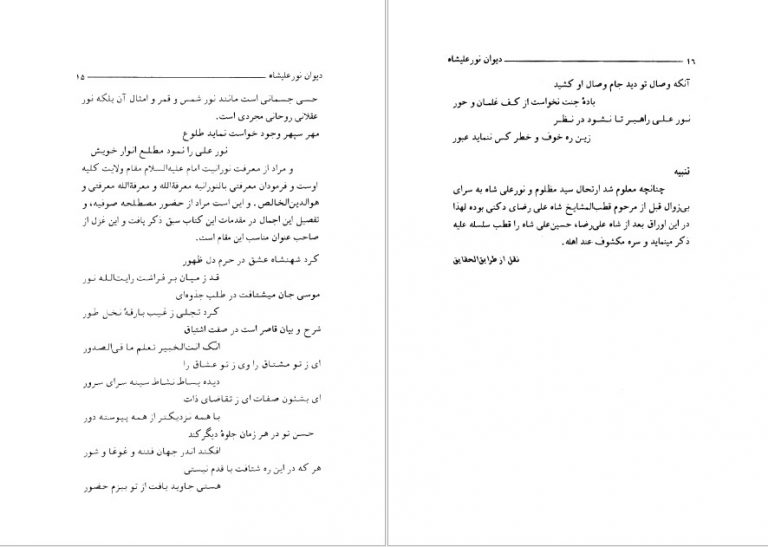 دیوان نورعلیشاه ۱۵
حسی جسمانی است مانند نور شمس و قمر و امثال آن بلکه نور
عقلانی روحانی مجردی است.
مهر سپهر وجود خواست نماید طلوع
نور علی را نمود مطلع انوار خویش
و مراد از معرفت نورانیت امام علیه‌السلام مقام ولایت کلیه
اوست و فرمودان معرفتی بالنورانیه معرفةالله و معرفةالله معرفتی و
هوالدین‌الخالص، و این است مراد از حضور مصطلحه صوفیه، و
تفصیل این اجمال در مقدمات این کتاب سبق ذکر یافت و این غزل از
صاحب عنوان مناسب این مقام است.
کرد شهنشاه عشق در حرم دل ظهور
قد ز میان بر فراشت رایت‌الله نور
موسی جان میشتافت در طلب جذوه‌ای
کرد تجلی ز غیب بارقهٔ نخل طور
شرح و بیان قاصر است در صفت اشتیاق
انک انت‌الخبیر تعلم ما فی‌الصدور
ای ز تو مشتاق را وی ز تو عشاق را
دیده بساط نشاط سینه سرای سرور
ای بشئون صفات ای ز تقاضای ذات
با همه نزدیکتر از همه پیوسته دور
حسن تو در هر زمان جلوهٔ دیگر کند
افکند اندر جهان فتنه و غوغا و شور
هر که در این ره شتافت با قدم نیستی
هستی جاوید یافت از تو ببزم حضور
۱۶ دیوان نورعلیشاه
آنکه وصال تو دید جام وصال او کشید
بادهٔ جنت نخواست از کف غلمان و حور
نور علی راهبر تا نشود در نظر
زین ره خوف و خطر کس ننماید عبور
تنبیه
چنانچه معلوم شد ارتحال سید مظلوم و نورعلی شاه به سرای
بی‌زوال قبل از مرحوم قطب‌المشایخ شاه علی رضای دکنی بوده لهذا
در این اوراق بعد از شاه علی‌رضا، حسین‌علی شاه را قطب سلسله علیه
ذکر مینماید و سره مکشوف عند اهله.
نقل از طرایق‌الحقایق